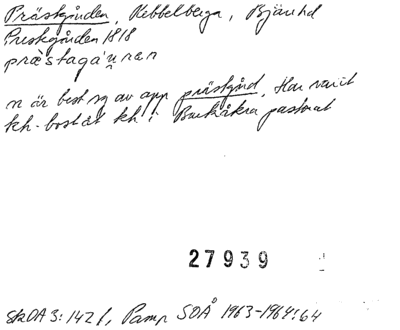 Prästgården, Vebbelberga, Bjäre hd
Prestgården 1818
præstagánen
n är best sg av app prästgård. Har varit
kh-bost åt kh i Barkåkra pastorat
27939
SkOA 3:142 f, Pamp SOÅ 1963-1964:64